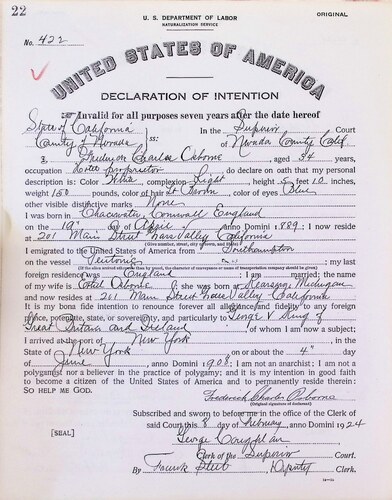 22
U. S. DEPARTMENT OF LABOR
NATURALIZATION SERVICE
ORIGINAL
No. 422
UNITED STATES OF AMERICA
DECLARATION OF INTENTION
Invalid for all purposes seven years after the date hereof
State of California
In the Superior Court
County of Nevada
ss:
of Nevada County Calif
I, Charles Osborne, aged 34 years,
occupation Hotel proprietor do declare on oath that my personal
description is: Color White complexion Light, height 5 feet 10 inches,
weight 150 pounds, color of hair Lt Brown, color of eyes Blue
other visible distinctive marks None
I was born in Chacewater, Cornwall England
on the day of, anno Domini 1889; I now reside
at 201 Main Street Grass Valley California
(Give number, street, city or town, and State.)
I emigrated to the United States of America from Southampton
on the vessel Teutonic; my last
(If the alien arrived otherwise than by vessel, the character of conveyance or name of transportation company should be given.)
foreign residence was England I am married; the name
of my wife is Ethel Osborne; she was born at Michigan
and now resides at 201 Main Street Grass Valley California
It is my bona fide intention to renounce forever all allegiance and fidelity to any foreign
prince, potentate, state, or sovereignty, and particularly to George V King of
Great Britain and Ireland, of whom I am now a subject;
I arrived at the port of New York, in the
State of New York, on or about the 4th day
of June, anno Domini 1908; I am not an anarchist; I am not a
polygamist nor a believer in the practice of polygamy; and it is my intention in good faith
to become a citizen of the United States of America and to permanently reside therein:
SO HELP ME GOD.
Frederick Charles Osborne
(Original signature of declarant.)
Subscribed and sworn to before me in the office of the Clerk of
said Court this 8 day of February, anno Domini 1924
[SEAL]
George Coughlan
Clerk of the Superior Court.
By Deputy Clerk.